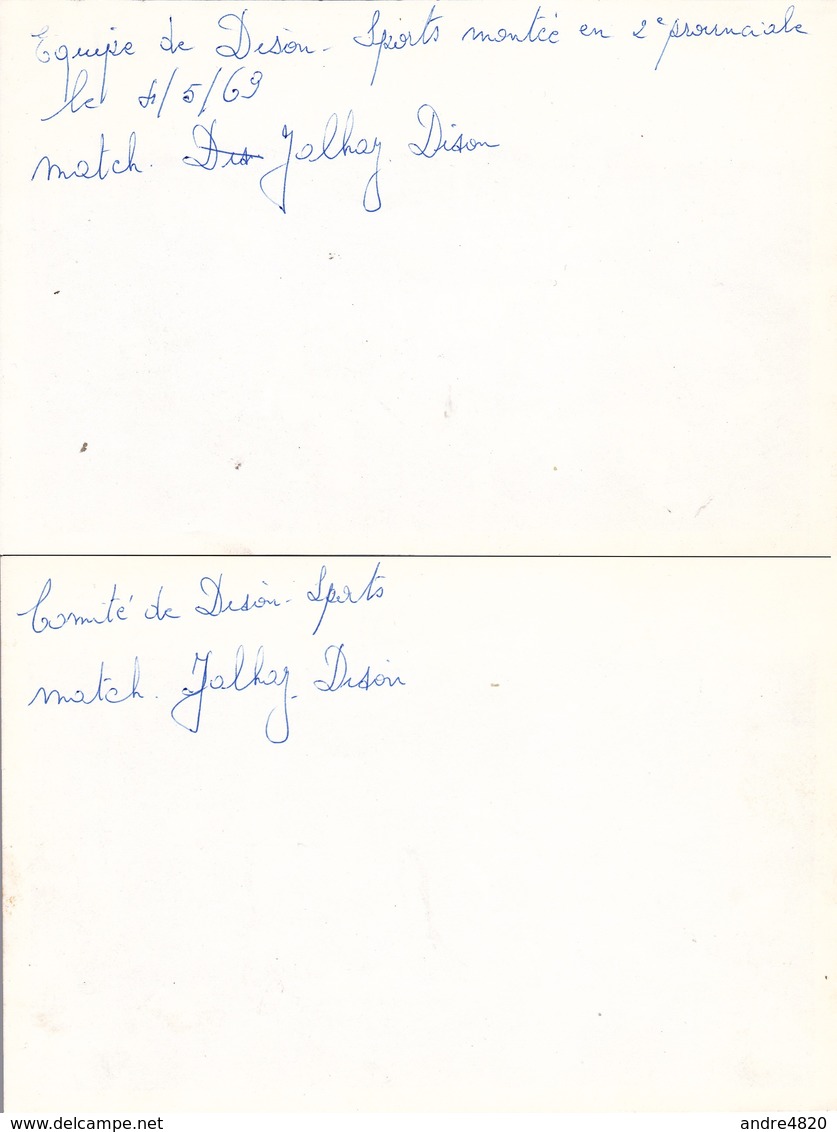 Equipe de Dison - Sports montée en 2e provinciale
le 4/5/69
match. Dis Jalhay. Dison
Comité de Dison - Sports
match. Jalhay - Dison
www.delcampe.net
andre4820